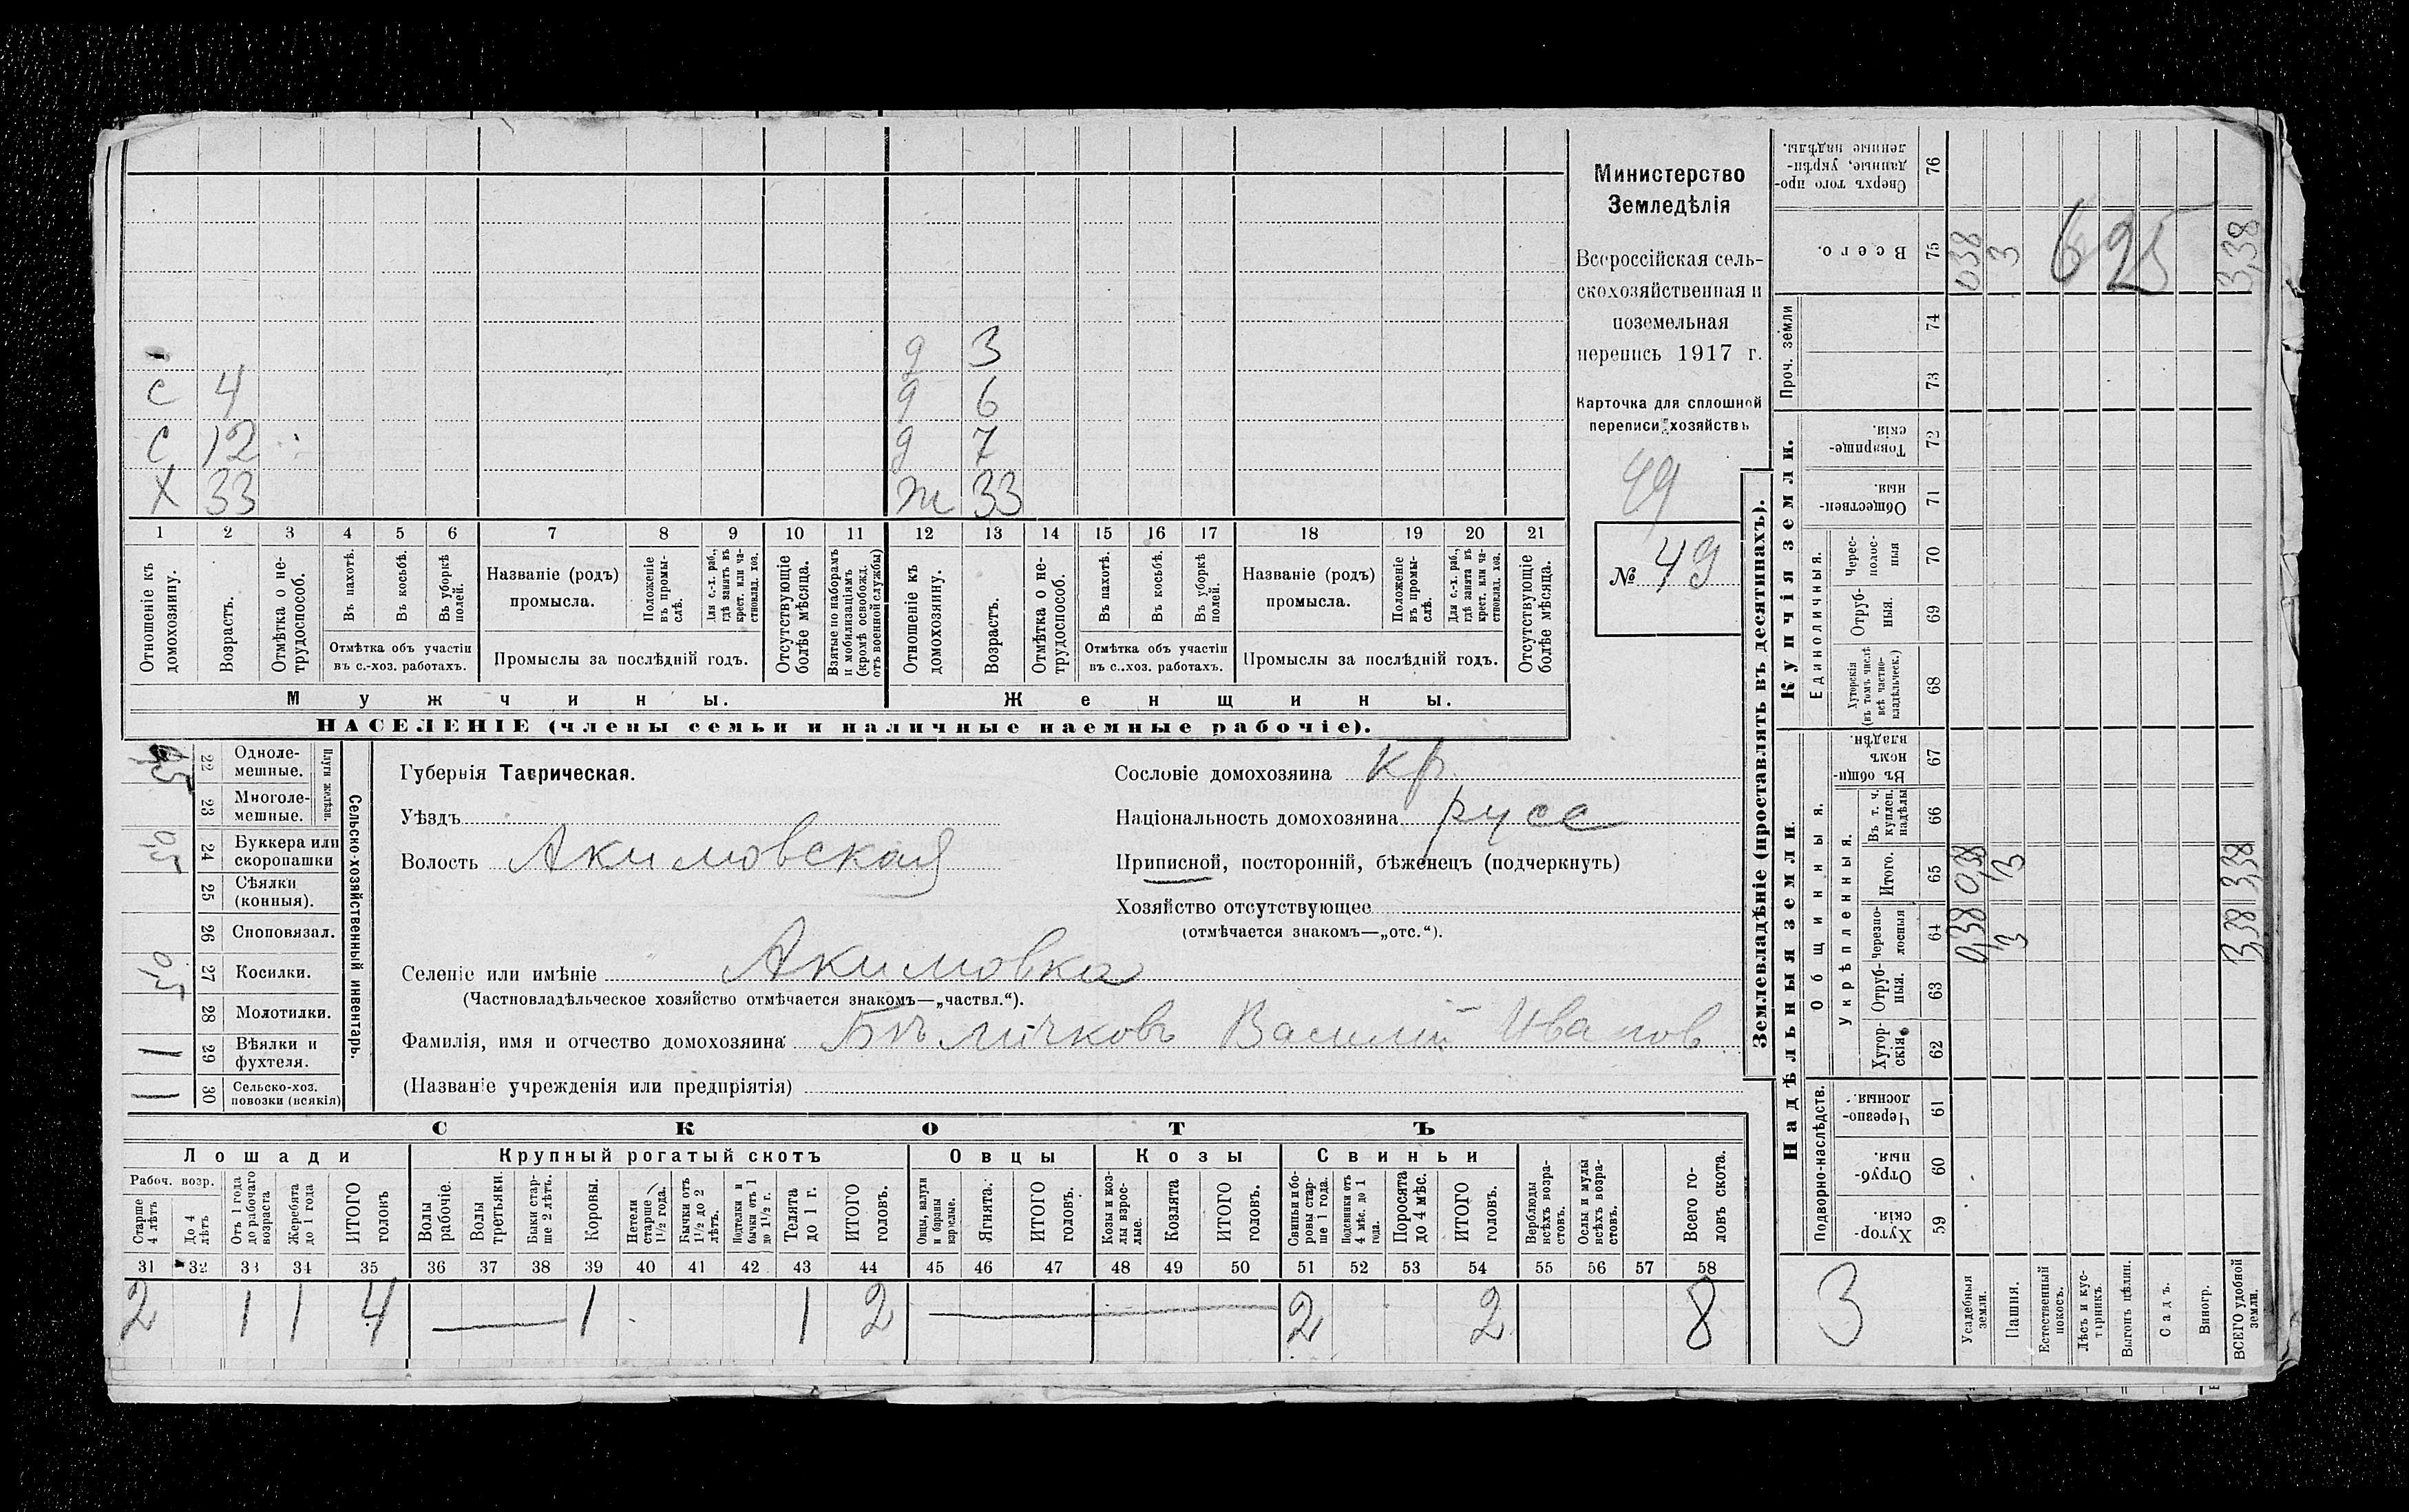 с 4
с 12
х 33
д 3
д 6
д 7
ж 33
1 2 3 4 5 6 7 8 9 10 11 12 13 14 15 16 17 18 19 20 21
Отношеніе къ домохозяину.
Возрастъ.
Отмѣтка о не-
трудоспособ.
Въ пахотѣ.
Въ косьбѣ.
Въ уборкѣ полей.
Отмѣтка объ участіи
въ с.-хоз. работахъ.
Названіе (родъ)
промысла.
Положеніе въ промы-
слѣ.
Для с.-х. раб., гдѣ занятъ въ крест. или ча-
стновлад. хоз.
Промыслы за послѣдній годъ.
Отсутствующіе болѣе мѣсяца.
Взятые по наборамъ и мобилизаціямъ (кромѣ освобожд. отъ военной службы)
Отношеніе къ домохозяину.
Возрастъ.
Отмѣтка о не-
трудоспособ.
Въ пахотѣ.
Въ косьбѣ.
Въ уборкѣ полей.
Отмѣтка объ участіи
въ с.-хоз. работахъ.
Названіе (родъ)
промысла.
Положеніе въ промы-
слѣ.
Для с.-х. раб., гдѣ занята въ крест. или ча-
стновлад. хоз.
Промыслы за послѣдній годъ.
Отсутствующіе болѣе мѣсяца.
Мужчины.
Женщины.
НАСЕЛЕНІЕ (члены семьи и наличные наемные рабочіе).
Министерство
Земледѣлія
Всероссійская сель-
скохозяйственная и
поземельная
перепись 1917 г.
Карточка для сплошной
переписи хозяйствъ
49
№ 49
Сельско-хозяйственный инвентарь.
Плуги желѣзн.
22 Одноле-
мешные.
23 Многоле-
мешные.
0,5 24 Буккера или
скоропашки
25 Сѣялки
(конныя).
26 Сноповязал.
0,5 27 Косилки.
28 Молотилки.
1 29 Вѣялки и
фухтеля.
30 Сельско-хоз.
повозки (всякія)
Губернія Таврическая.
Уѣздъ
Волость Акимовская
Сословіе домохозяина кр.
Національность домохозяина русс
Приписной, посторонній, бѣженецъ (подчеркнуть)
Хозяйство отсутствующее
(отмѣчается знакомъ—„отс.“).
Селеніе или имѣніе Акимовка
(Частновладѣльческое хозяйство отмѣчается знакомъ—„частвл.“).
Фамилія, имя и отчество домохозяина: Василій Иванов
(Названіе учрежденія или предпріятія)
СКОТЪ
Лошади Крупный рогатый скотъ Овцы Козы Свиньи
Рабоч. возр.
Старше 4 лѣтъ
До 4 лѣтъ
Отъ 1 года до рабочаго возраста
Жеребята до 1 года
ИТОГО головъ
Волы рабочіе.
Волы третьяки.
Быки стар-
ше 2 лѣтъ.
Коровы.
Нетели старше 1½ года.
Бычки отъ 1½ до 2 лѣтъ.
Подтелки и бычки отъ 1 до 1½ г.
Телята до 1 г.
ИТОГО головъ.
Овцы, валухи и бараны взрослые.
Ягнята.
ИТОГО головъ.
Козы и коз-
лы взрос-
лые.
Козлята
ИТОГО головъ.
Свиньи и бо-
ровы стар-
ше 1 года.
Подсвинки отъ 4 мѣс. до 1 года.
Поросята до 4 мѣс.
ИТОГО головъ.
Верблюды всѣхъ возра-
стовъ.
Ослы и мулы всѣхъ возра-
стовъ.
Всего го-
ловъ скота.
31 32 33 34 35 36 37 38 39 40 41 42 43 44 45 46 47 48 49 50 51 52 53 54 55 56 57 58
2 1 1 4 — 1 1 2 — 2 2 8
Землевладѣніе (проставлять въ десятинахъ).
Надѣльныя земли.
Купчія земли.
Проч. земли
Подворно-наслѣдств.
Общинныя.
Укрѣпленныя.
Единоличныя.
Сверхъ того про-
данные, укрѣп-
ленные надѣлы. 76
Всего. 75
74
73
Товарище-
скія. 72
Обществен-
ныя. 71
Черес-
полос-
ныя 70
Отруб-
ныя. 69
Хуторскія (въ томъ числѣ всѣ частно-
владѣльческ.) 68
Въ общи-
номъ
владѣн. 67
Въ т. ч. куплен. надѣлы 66
Итого. 65
Черезпо-
лосныя 64
Отруб-
ныя. 63
Хутор-
скія. 62
Черезпо-
лосныя. 61
Отруб-
ныя. 60
Хутор-
скія. 59
3
6 25
Усадебныя земли. 0,38 0,38 0,38
Пашня. 3 3 3
Естественный покосъ.
Лѣсъ и кус-
тарникъ.
Выгонъ цѣлин.
Садъ.
Виногр.
ВСЕГО удобной земли. 3,38 3,38 3,38